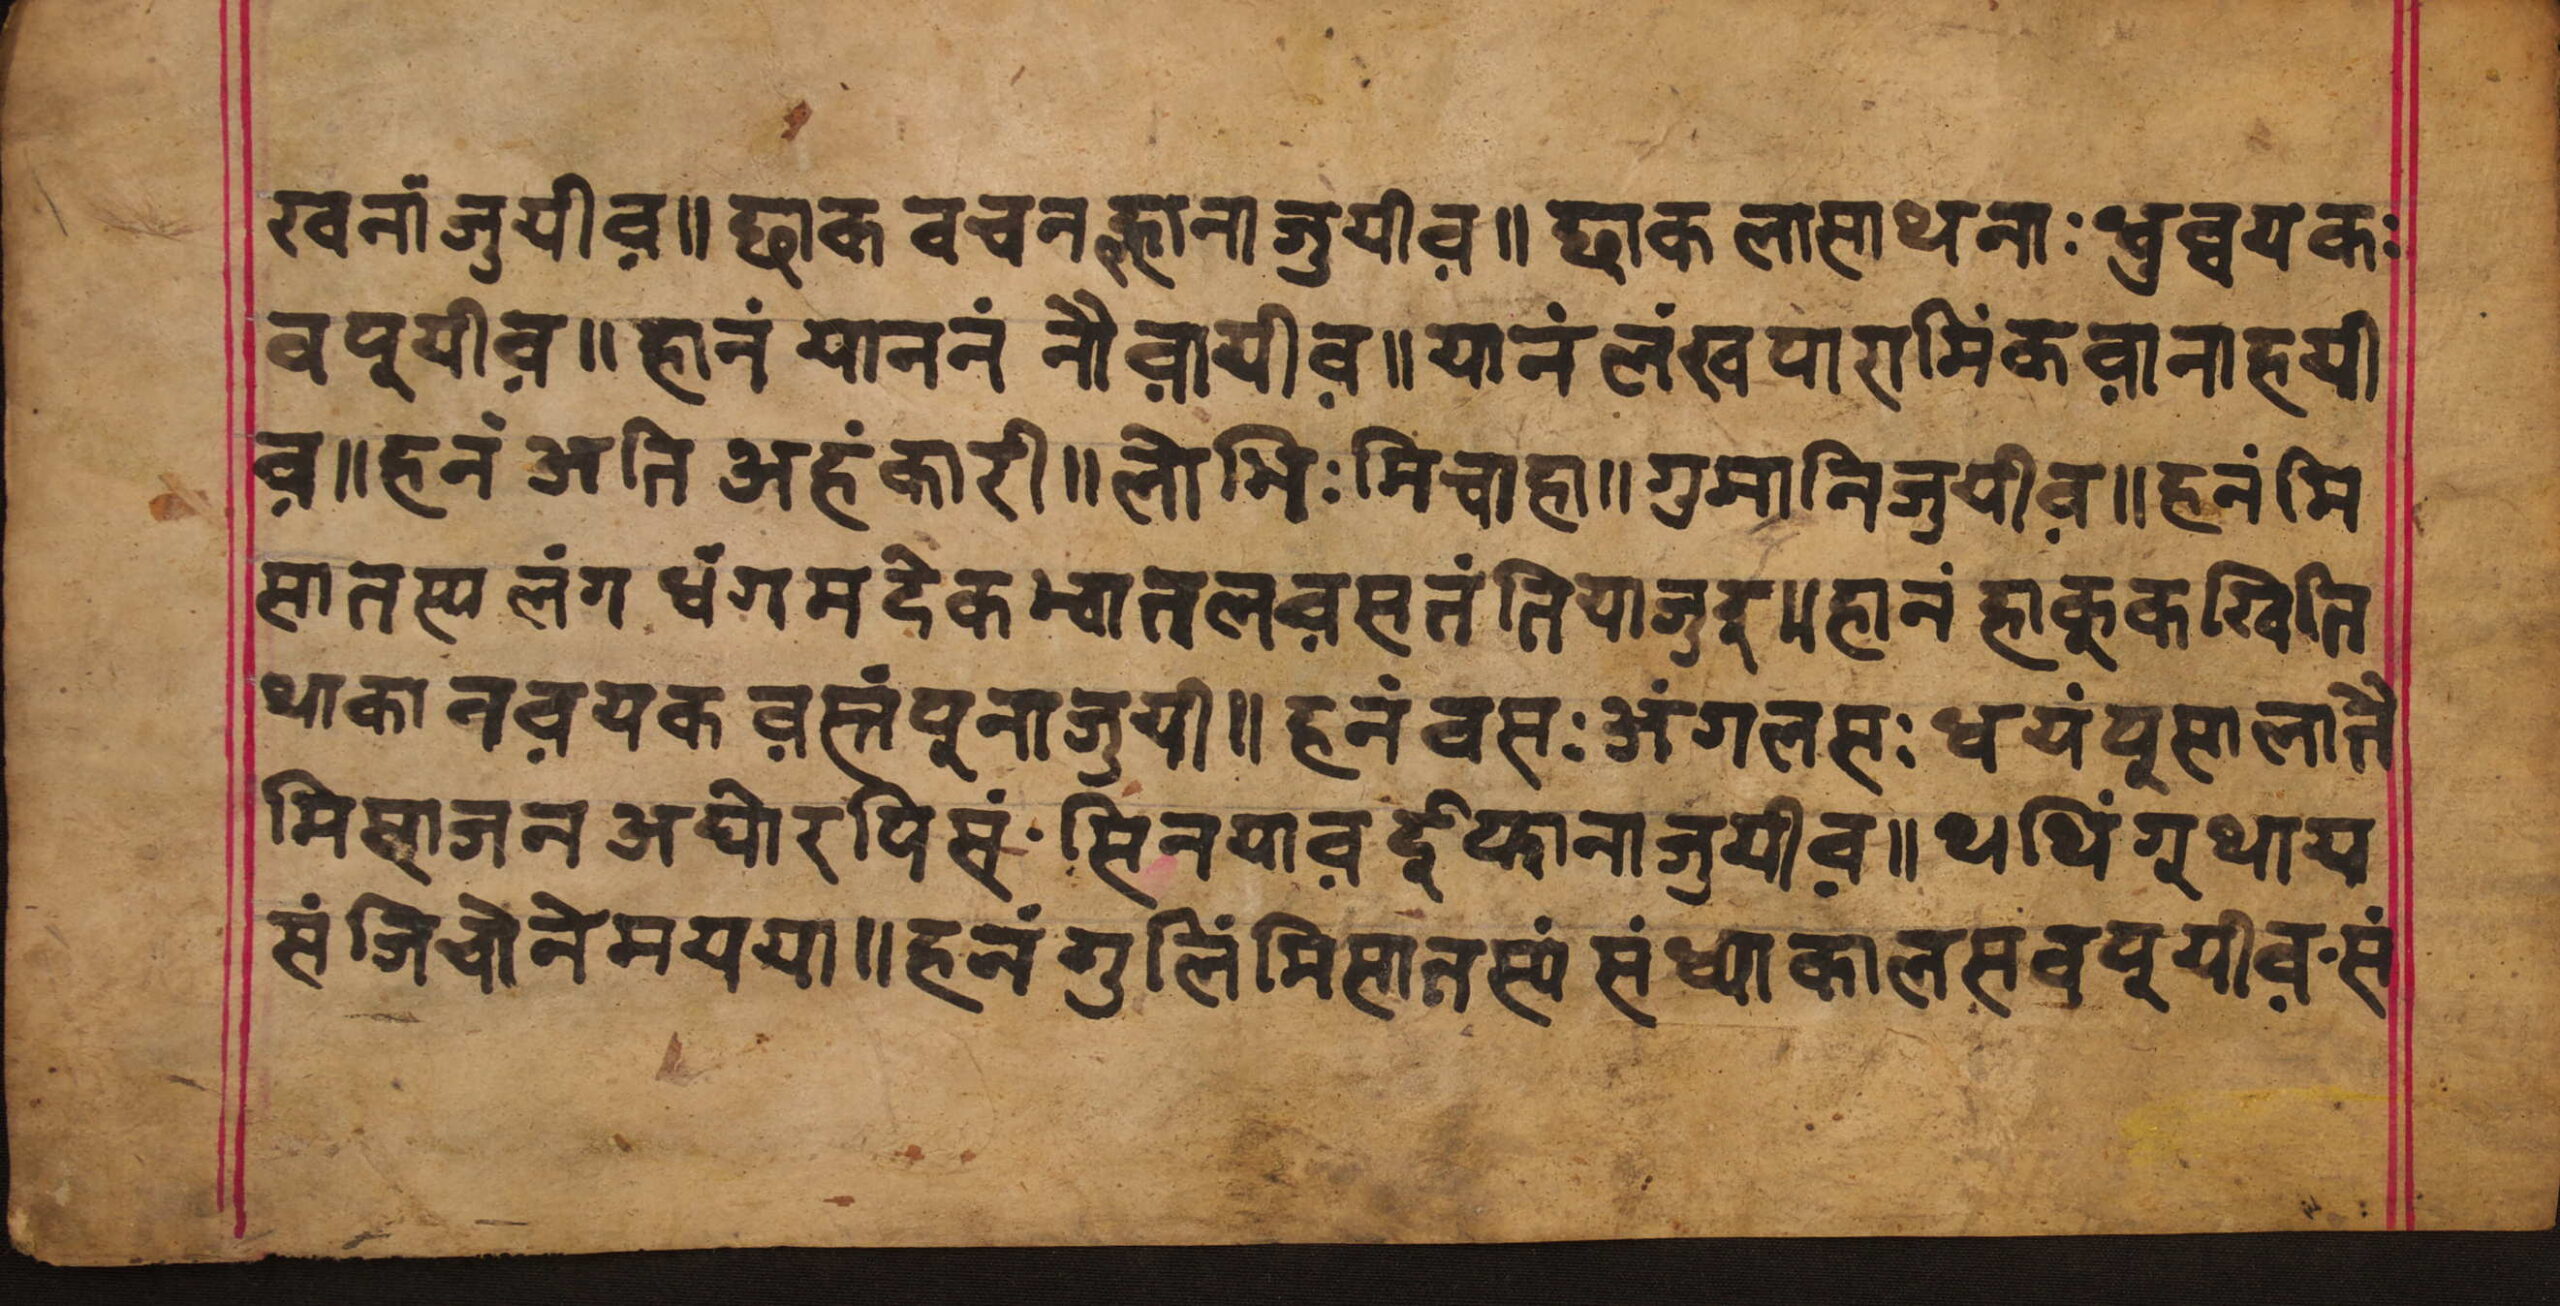 खनां जुयीव़॥ छाक वचन ह्लाना जुयीव़॥ छाक लासाथनाः भ्रुव्वयकः
वपूयीव़॥ हानं याननं नौव़ायीव़॥ यानं लंखपारामिंकव़ानाहयी
व़॥ हनं अति अहंकारी॥ लोभिः मिचाहा॥ गुमानिजुयीव़॥ हनं मि
सातस्य लंग धंगमदेक म्वातलव़सतं तियाजुइ॥ हानं हाकुकखिति
थाकानव़यक व़स्तंपूनाजुयी॥ हनं वसः अंगलसः धयंपूसालातै
मिसाजन अघोरपिसं सिनयाव़ दूफानाजुयीव़॥ थथिंगूथाय
सं जिचोनेमयया॥ हनं गुलिं मिसातस्यं संध्याकालस वपूयीव़ सं